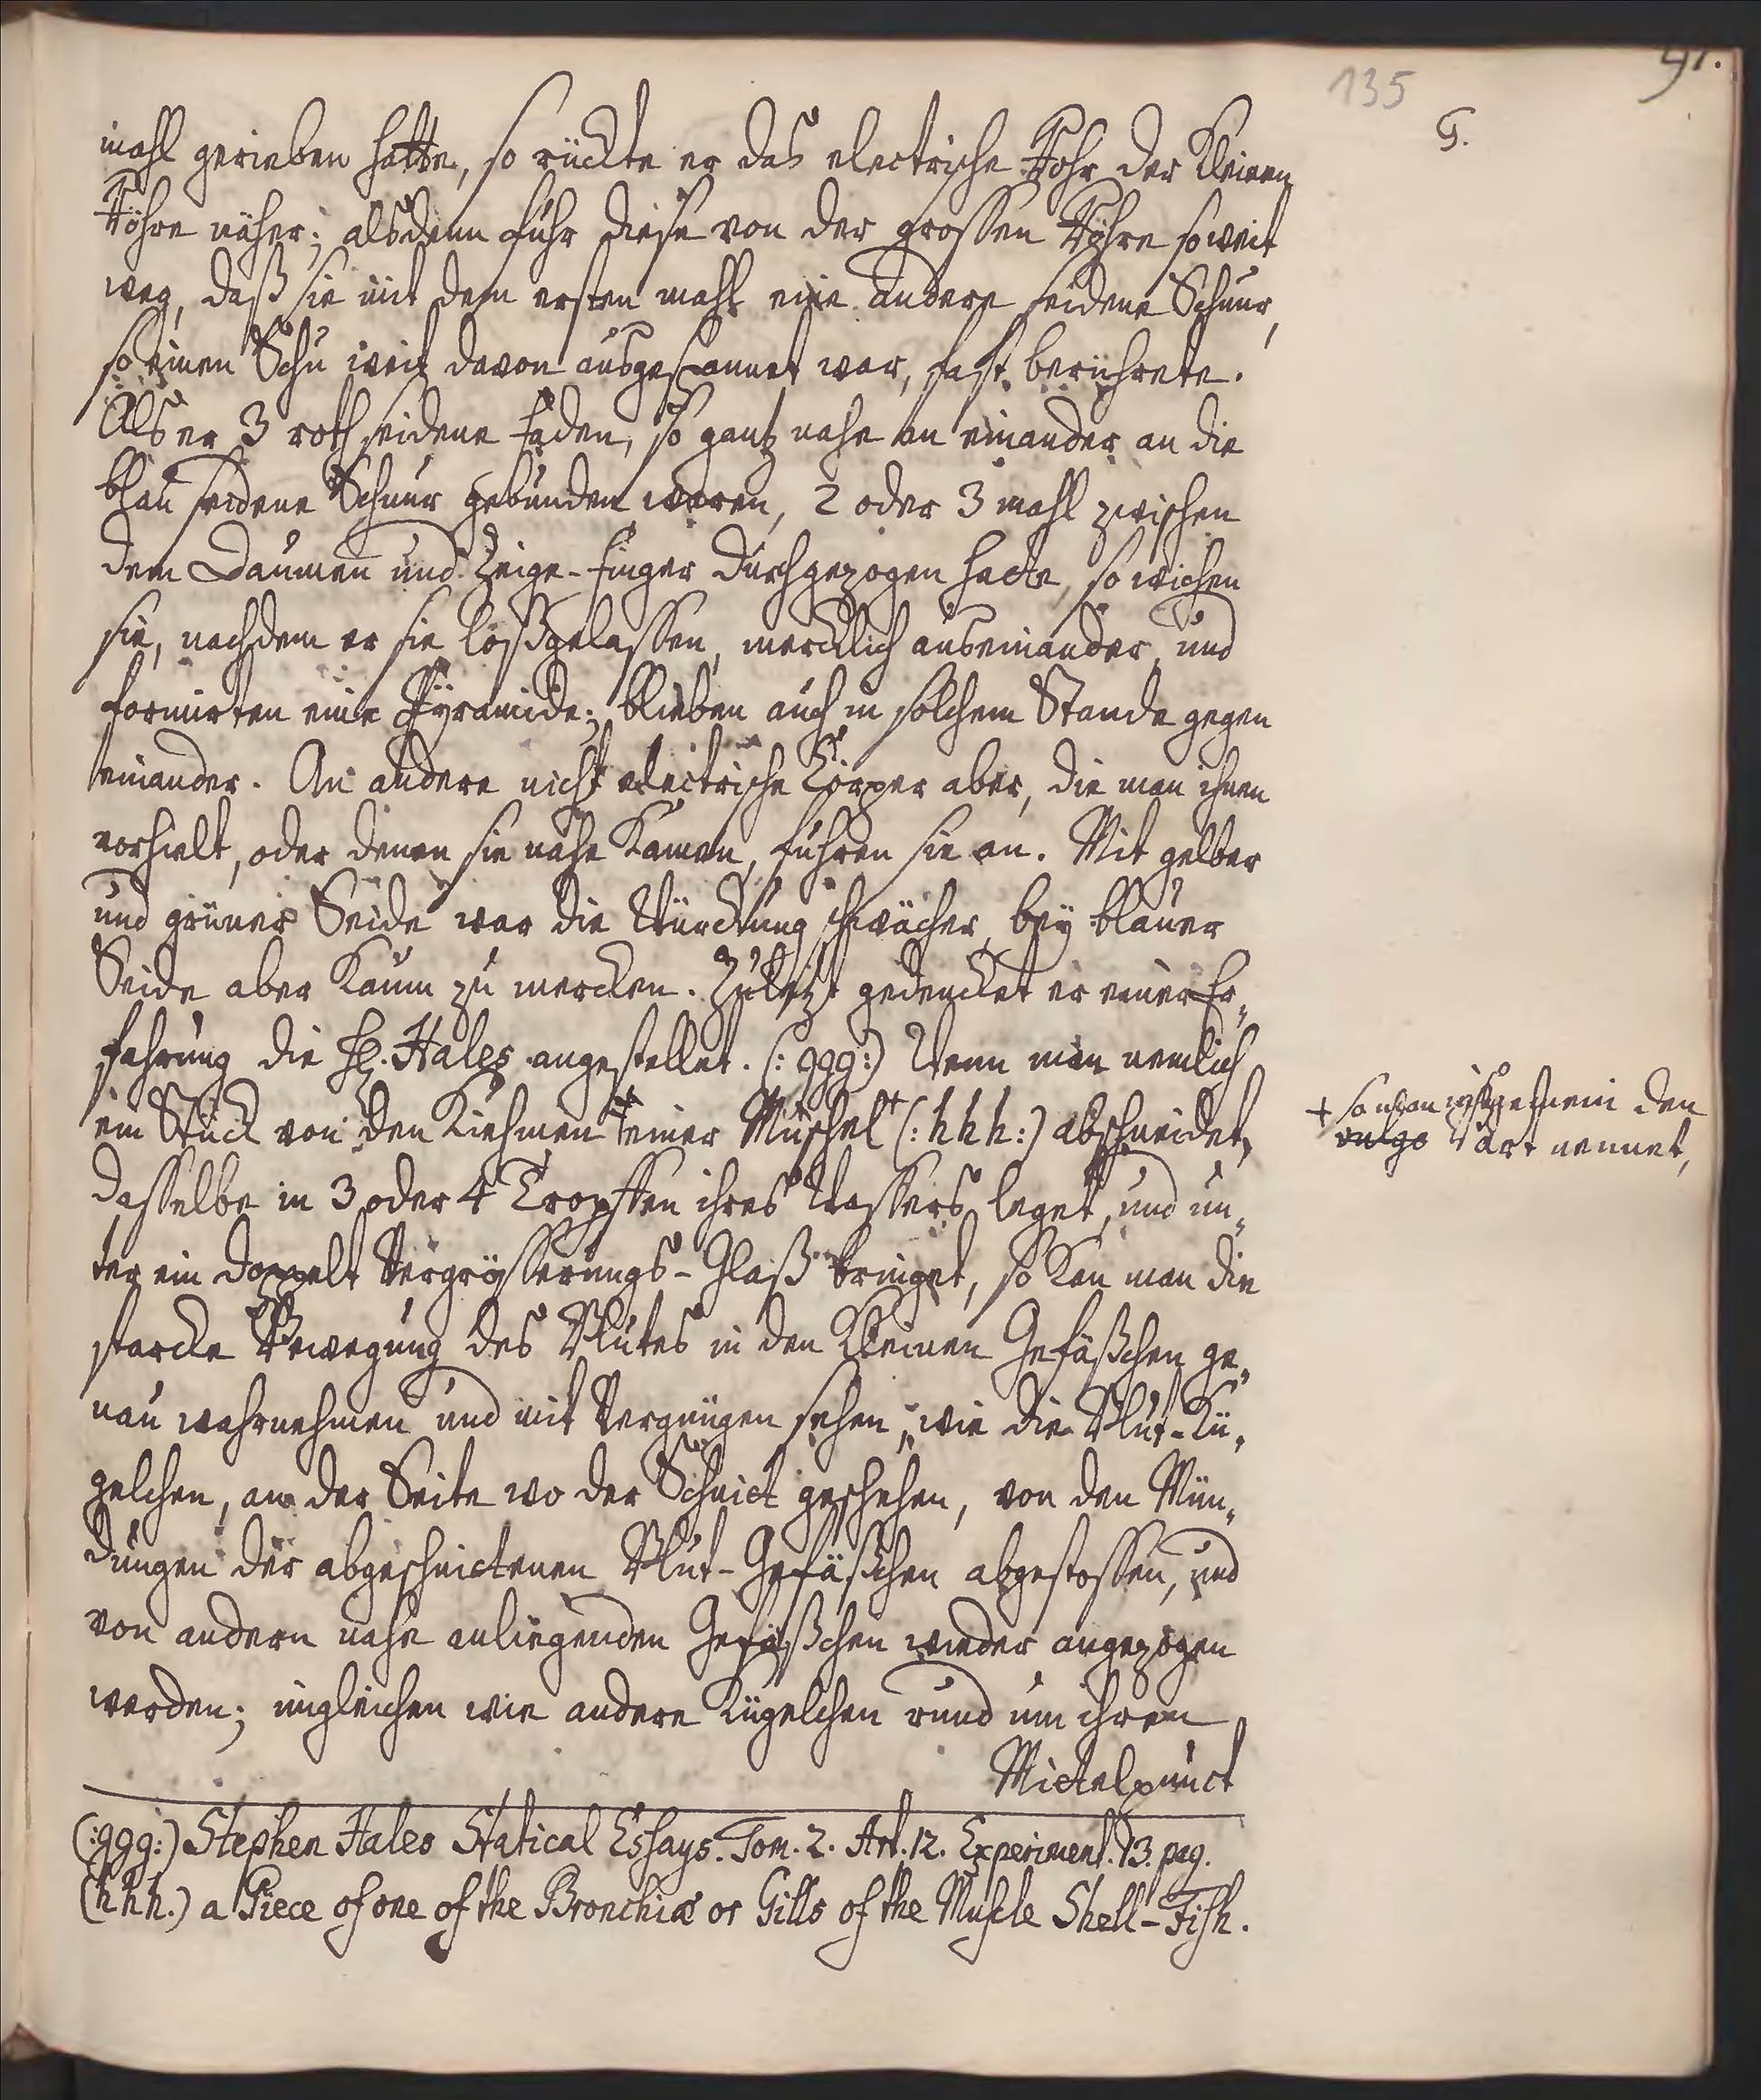 135
91.
G.
mahl gerieben hatte, so rückte er das electrische Rohr der kleinen
Röhre näher; alsdenn fuhr diese von der grossen Röhre so weit
weg, daß sie mit dem ersten mahl eine andere seidene Schnur,
so einen Schu weit davon ausgespannet war, fast berührete.
Als er 3 roth seidene Fäden, so gantz nahe an einander an die
blau seidene Schnur gebunden waren, 2 oder 3 mahl zwischen
dem Daumen und Zeige-Finger durchgezogen hatte, so wichen
sie, nachdem er sie loßgelassen, mercklich auseinander, und
formirten eine Pyramide; blieben auch in solchem Stande gegen
einander. An andere nicht electrische Körper aber, die man ihnen
vorhielt, oder denen sie nahe kamen, fuhren sie an. Mit gelber
und grüner Seide war die Würckung schwächer, bey blauer
Seide aber kaum zu mercken. Zuletzt gedencket er einer Er„
fahrung die H. Hales angestellet. (:ggg:) Wenn man nemlich
ein Stück von den Kiehmen einer Muschel + (:hhh:) abschneidet,
+ so man insgemein den
vulgo Bart nennet,
dasselbe in 3 oder 4 Tropffen ihres Wassers leget, und un„
ter ein doppelt Vergrösserungs-Glaß bringet, so kan man die
starcke Bewegung des Blutes in den kleinen Gefäßchen ge„
nau wahrnehmen und mit Vergnügen sehen, wie die Blut-Kü„
gelchen, an der Seite wo der Schnitt geschehen, von den Mün„
dungen der abgeschnittenen Blut-Gefäßchen abgestossen, und
von andern nahe anliegenden Gefäßchen wieder angezogen
werden; ingleichen wie andere Kügelchen rund um ihren
Mittelpunct
(:ggg:) Stephen Hales Statical Essays. Tom. 2. Art. 12. Experiment. 13. pag.
(hhh.) a Piece of one of the Bronchiæ or Gills of the Muscle Shell-Fish.